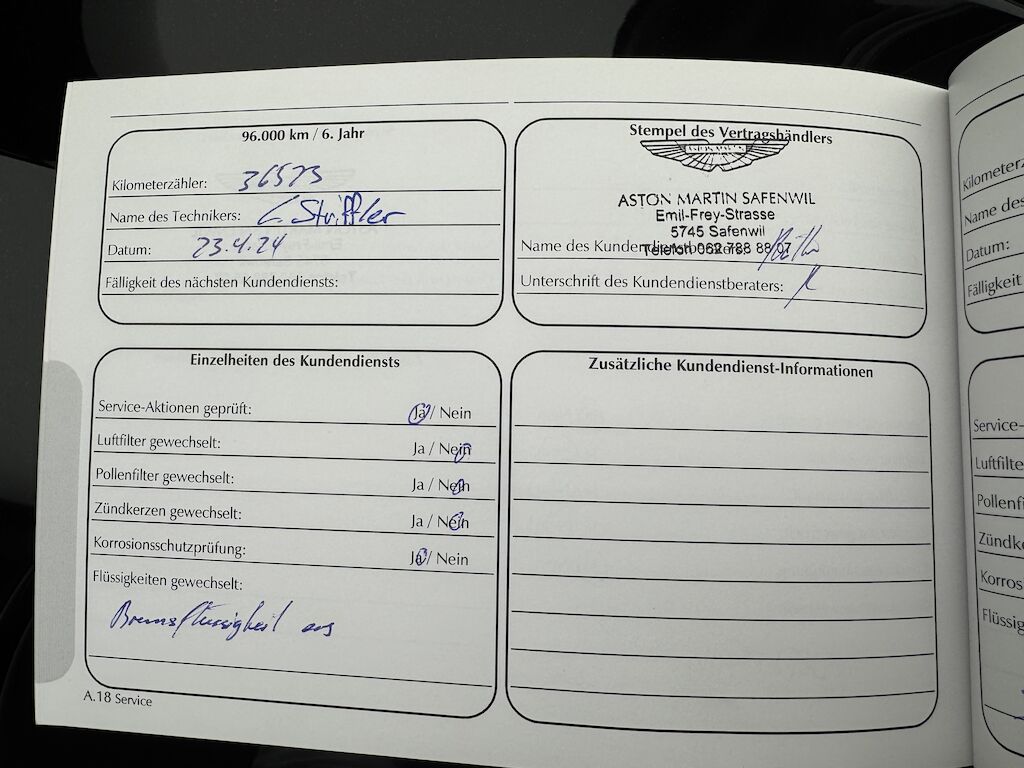 96.000 km / 6. Jahr
Kilometerzähler: 36573
Name des Technikers: C Striffler
Datum: 23.4.24
Fälligkeit des nächsten Kundendiensts:
Stempel des Vertragshändlers
ASTON MARTIN
ASTON MARTIN SAFENWIL
Emil-Frey-Strasse
5745 Safenwil
Telefon 062 788 88 07
Name des Kundendienstberaters:
Unterschrift des Kundendienstberaters:
Einzelheiten des Kundendiensts
Service-Aktionen geprüft: Ja / Nein
Luftfilter gewechselt: Ja / Nein
Pollenfilter gewechselt: Ja / Nein
Zündkerzen gewechselt: Ja / Nein
Korrosionsschutzprüfung: Ja / Nein
Flüssigkeiten gewechselt:
Bremsflüssigkeit
Zusätzliche Kundendienst-Informationen
A.18 Service
Kilometerz
Name des
Datum:
Fälligkeit
Service-
Luftfilte
Pollenfi
Zündke
Korros
Flüssig